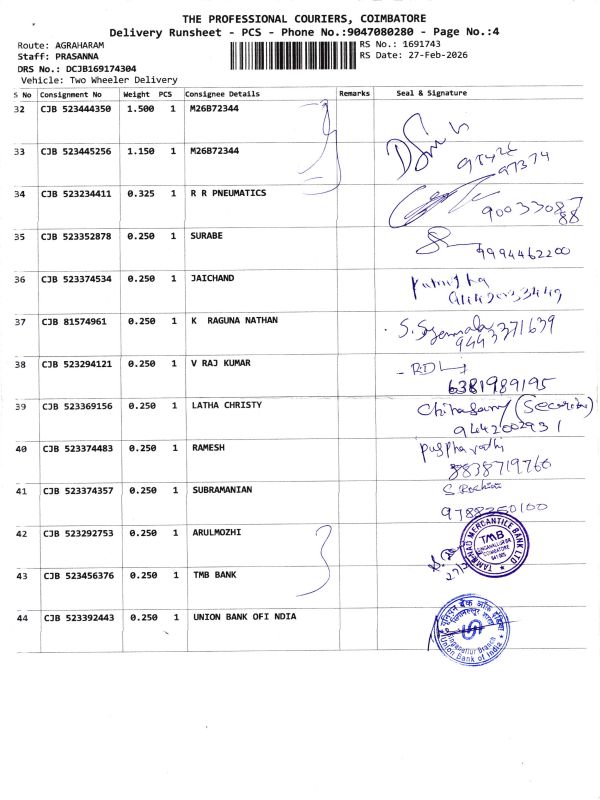 THE PROFESSIONAL COURIERS, COIMBATORE
Delivery Runsheet - PCS - Phone No.:9047080280 - Page No.:4
Route: AGRAHARAM
Staff: PRASANNA
DRS No.: DCJB169174304
Vehicle: Two Wheeler Delivery
RS No.: 1691743
RS Date: 27-Feb-2026
S No Consignment No Weight PCS Consignee Details Remarks Seal & Signature
32 CJB 523444350 1.500 1 M26B72344
33 CJB 523445256 1.150 1 M26B72344
97374
34 CJB 523234411 0.325 1 R R PNEUMATICS
90033087
88
35 CJB 523352878 0.250 1 SURABE
9994462200
36 CJB 523374534 0.250 1 JAICHAND
37 CJB 81574961 0.250 1 K RAGUNA NATHAN
9443371639
38 CJB 523294121 0.250 1 V RAJ KUMAR
6381989195
39 CJB 523369156 0.250 1 LATHA CHRISTY
9442002931
40 CJB 523374483 0.250 1 RAMESH
8838719760
41 CJB 523374357 0.250 1 SUBRAMANIAN
42 CJB 523292753 0.250 1 ARULMOZHI
TAMILNAD MERCANTILE BANK LTD
TMB
43 CJB 523456376 0.250 1 TMB BANK
44 CJB 523392443 0.250 1 UNION BANK OFI NDIA
यूनियन बैंक ऑफ इंडिया
Union Bank of India